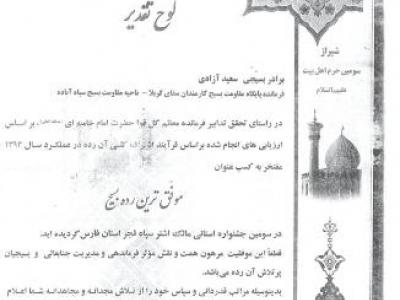 لوح تقدیر
شیراز
سومین حرم اهل بیت
علیهم السلام
برادر بسیجی سعید آزادی
فرمانده پایگاه مقاومت بسیج کارمندان سنای کربلا - ناحیه مقاومت بسیج سپاه آباده
در راستای تحقق تدابیر فرمانده معظم کل قوا حضرت امام خامنه ای بر اساس
ارزیابی های انجام شده براساس فرآیند کلی آن رده در عملکرد سال ۱۳۹۳
مفتخر به کسب عنوان
موفق ترین رده بسیج
در سومین جشنواره استانی مالک اشتر سپاه فجر استان فارس گردیده اید.
قطعاً این موفقیت مرهون همت و نقش مؤثر فرماندهی و مدیریت جنابعالی و بسیجیان
پرتلاش آن رده می‌باشد.
بدینوسیله مراتب قدردانی و سپاس خود را از تلاش مجدانه و مجاهدانه شما اعلام